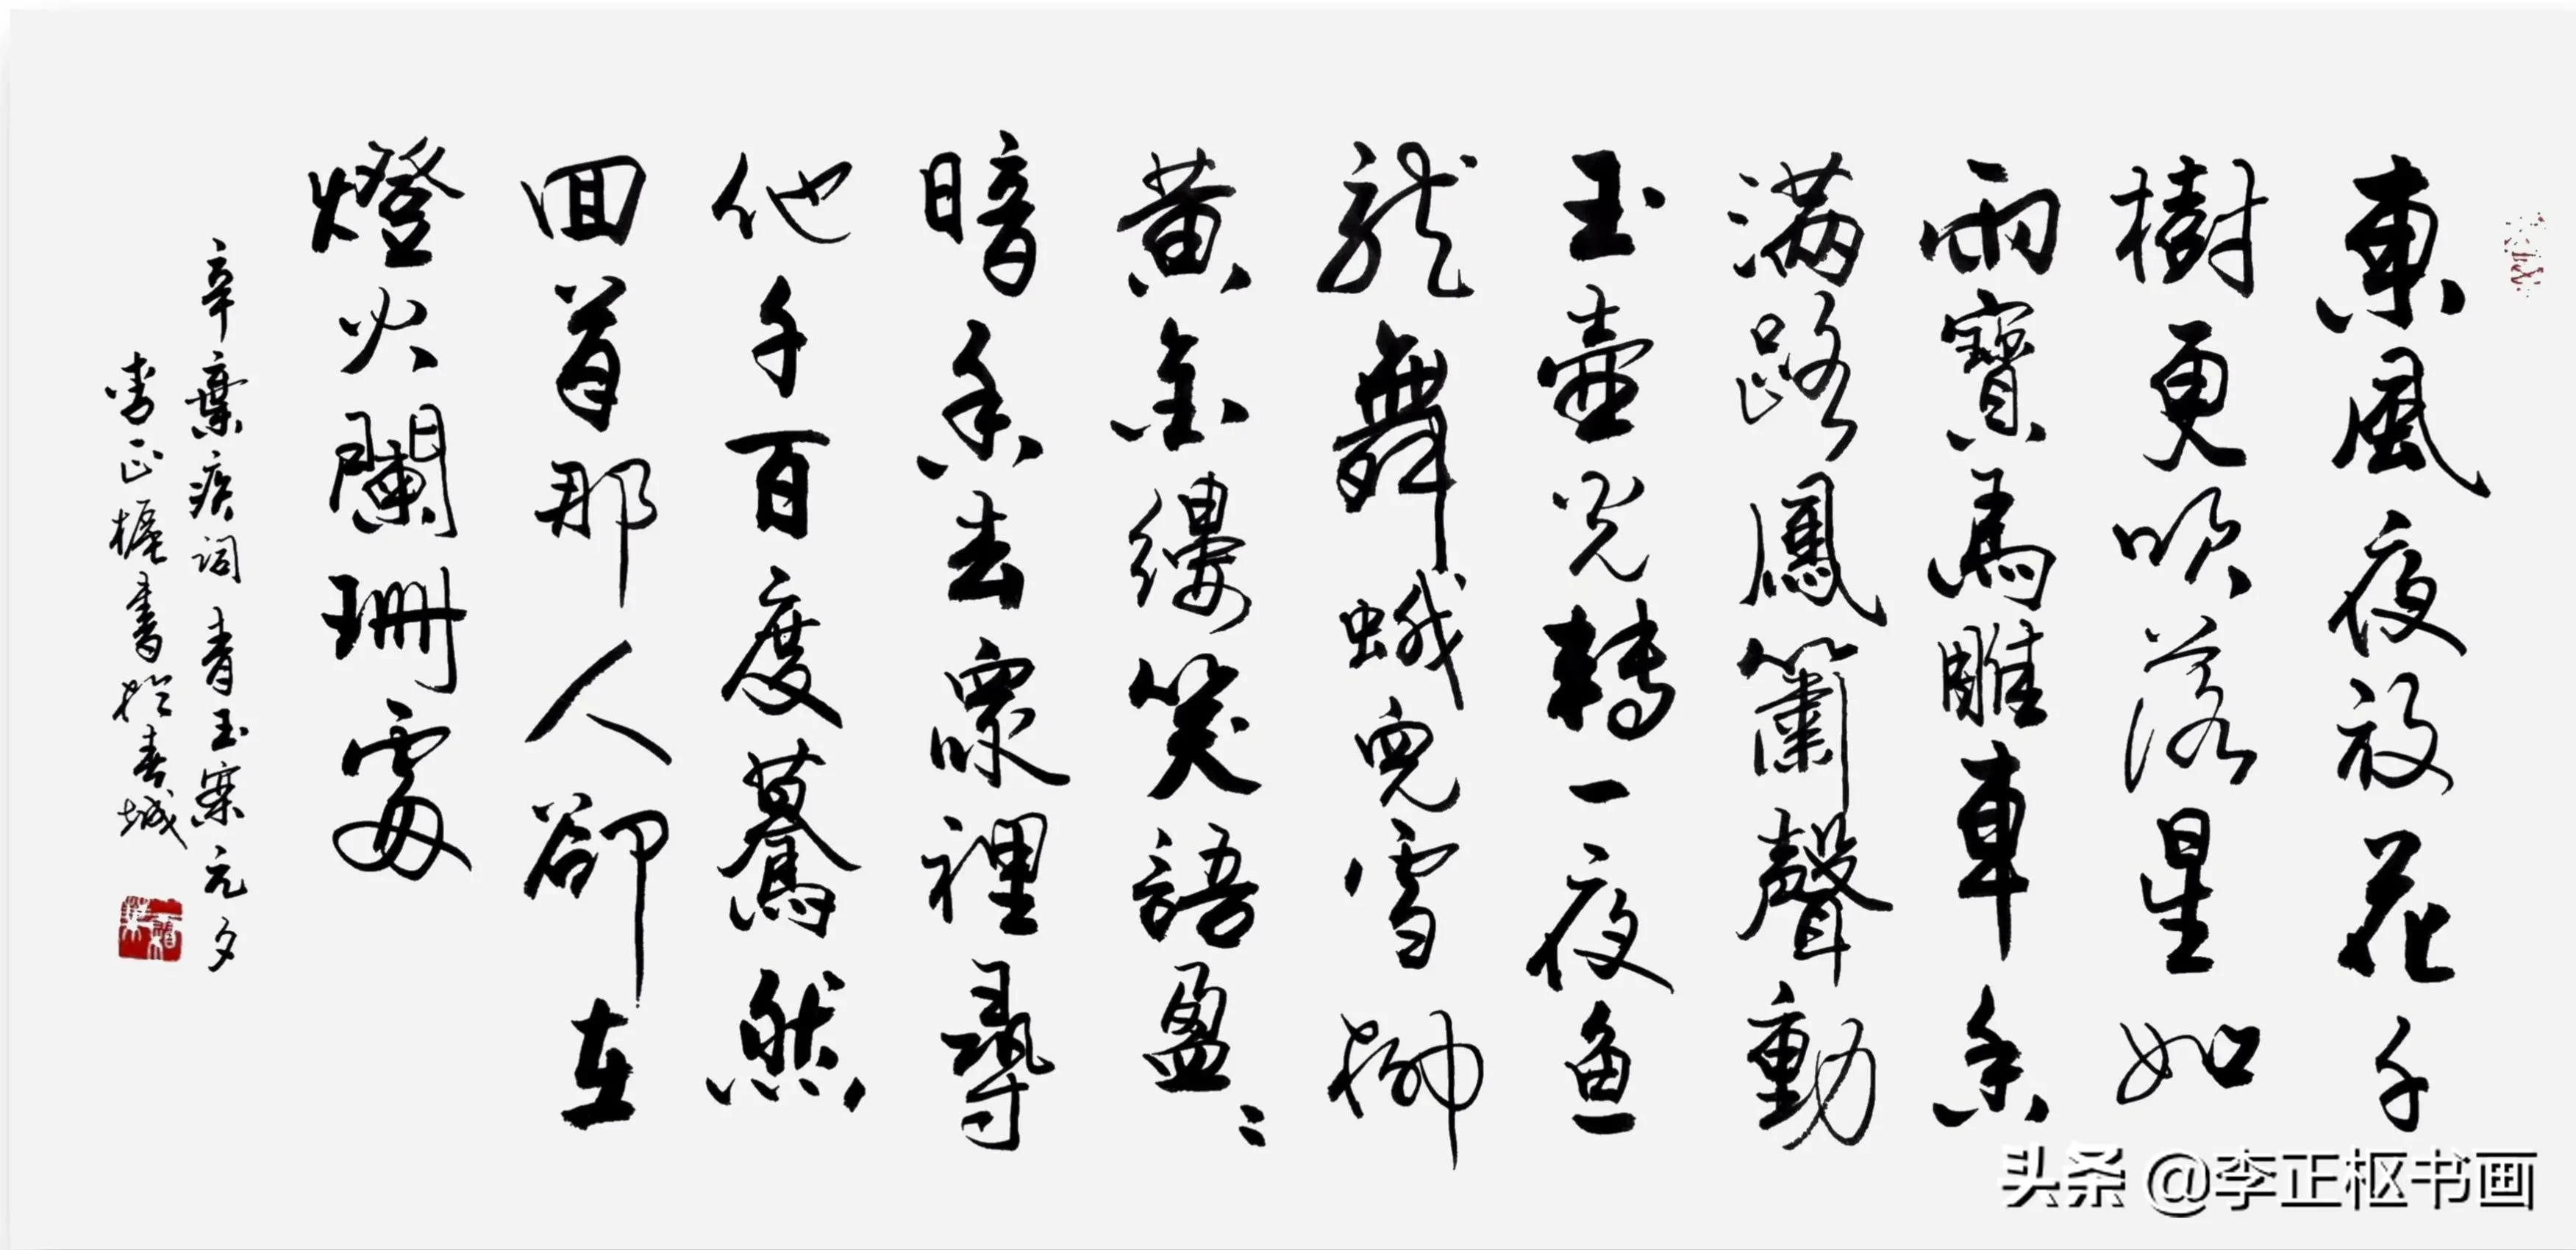 東風夜放花千
樹更吹落星如
雨寶馬雕車香
满路鳳簫聲動
玉壺光轉一夜魚
龍舞蛾兒雪柳
黄金縷笑語盈〻
暗香去衆裡尋
他千百度驀然
回首那人卻在
燈火闌珊處
辛棄疾词青玉案元夕
李正樞書於春城
头条 @李正枢书画